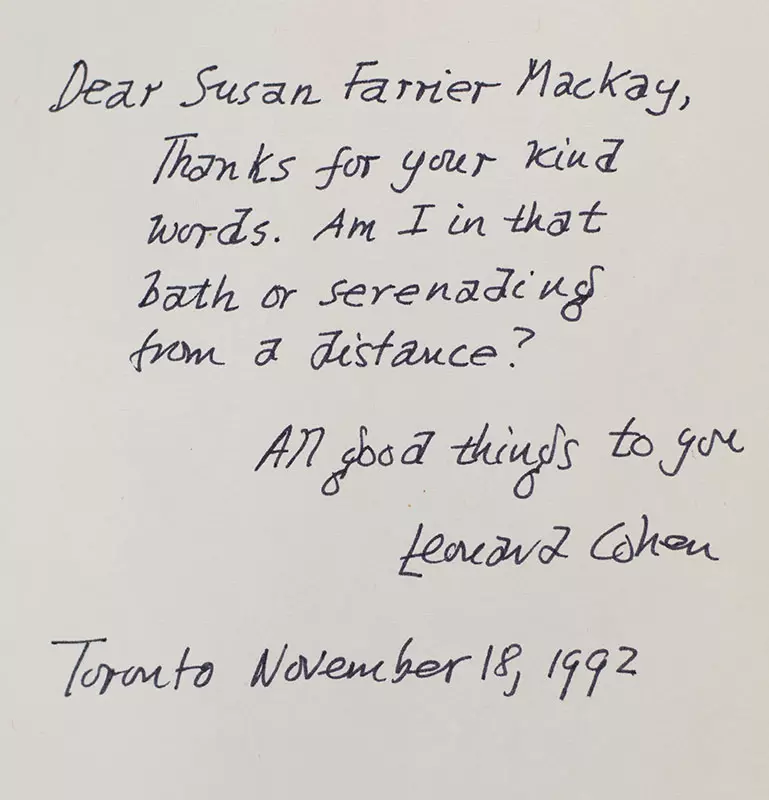 Dear Susan Farrier Mackay,
Thanks for your kind
words. Am I in that
bath or serenading
from a distance?
All good things to you
Leonard Cohen
Toronto November 18, 1992